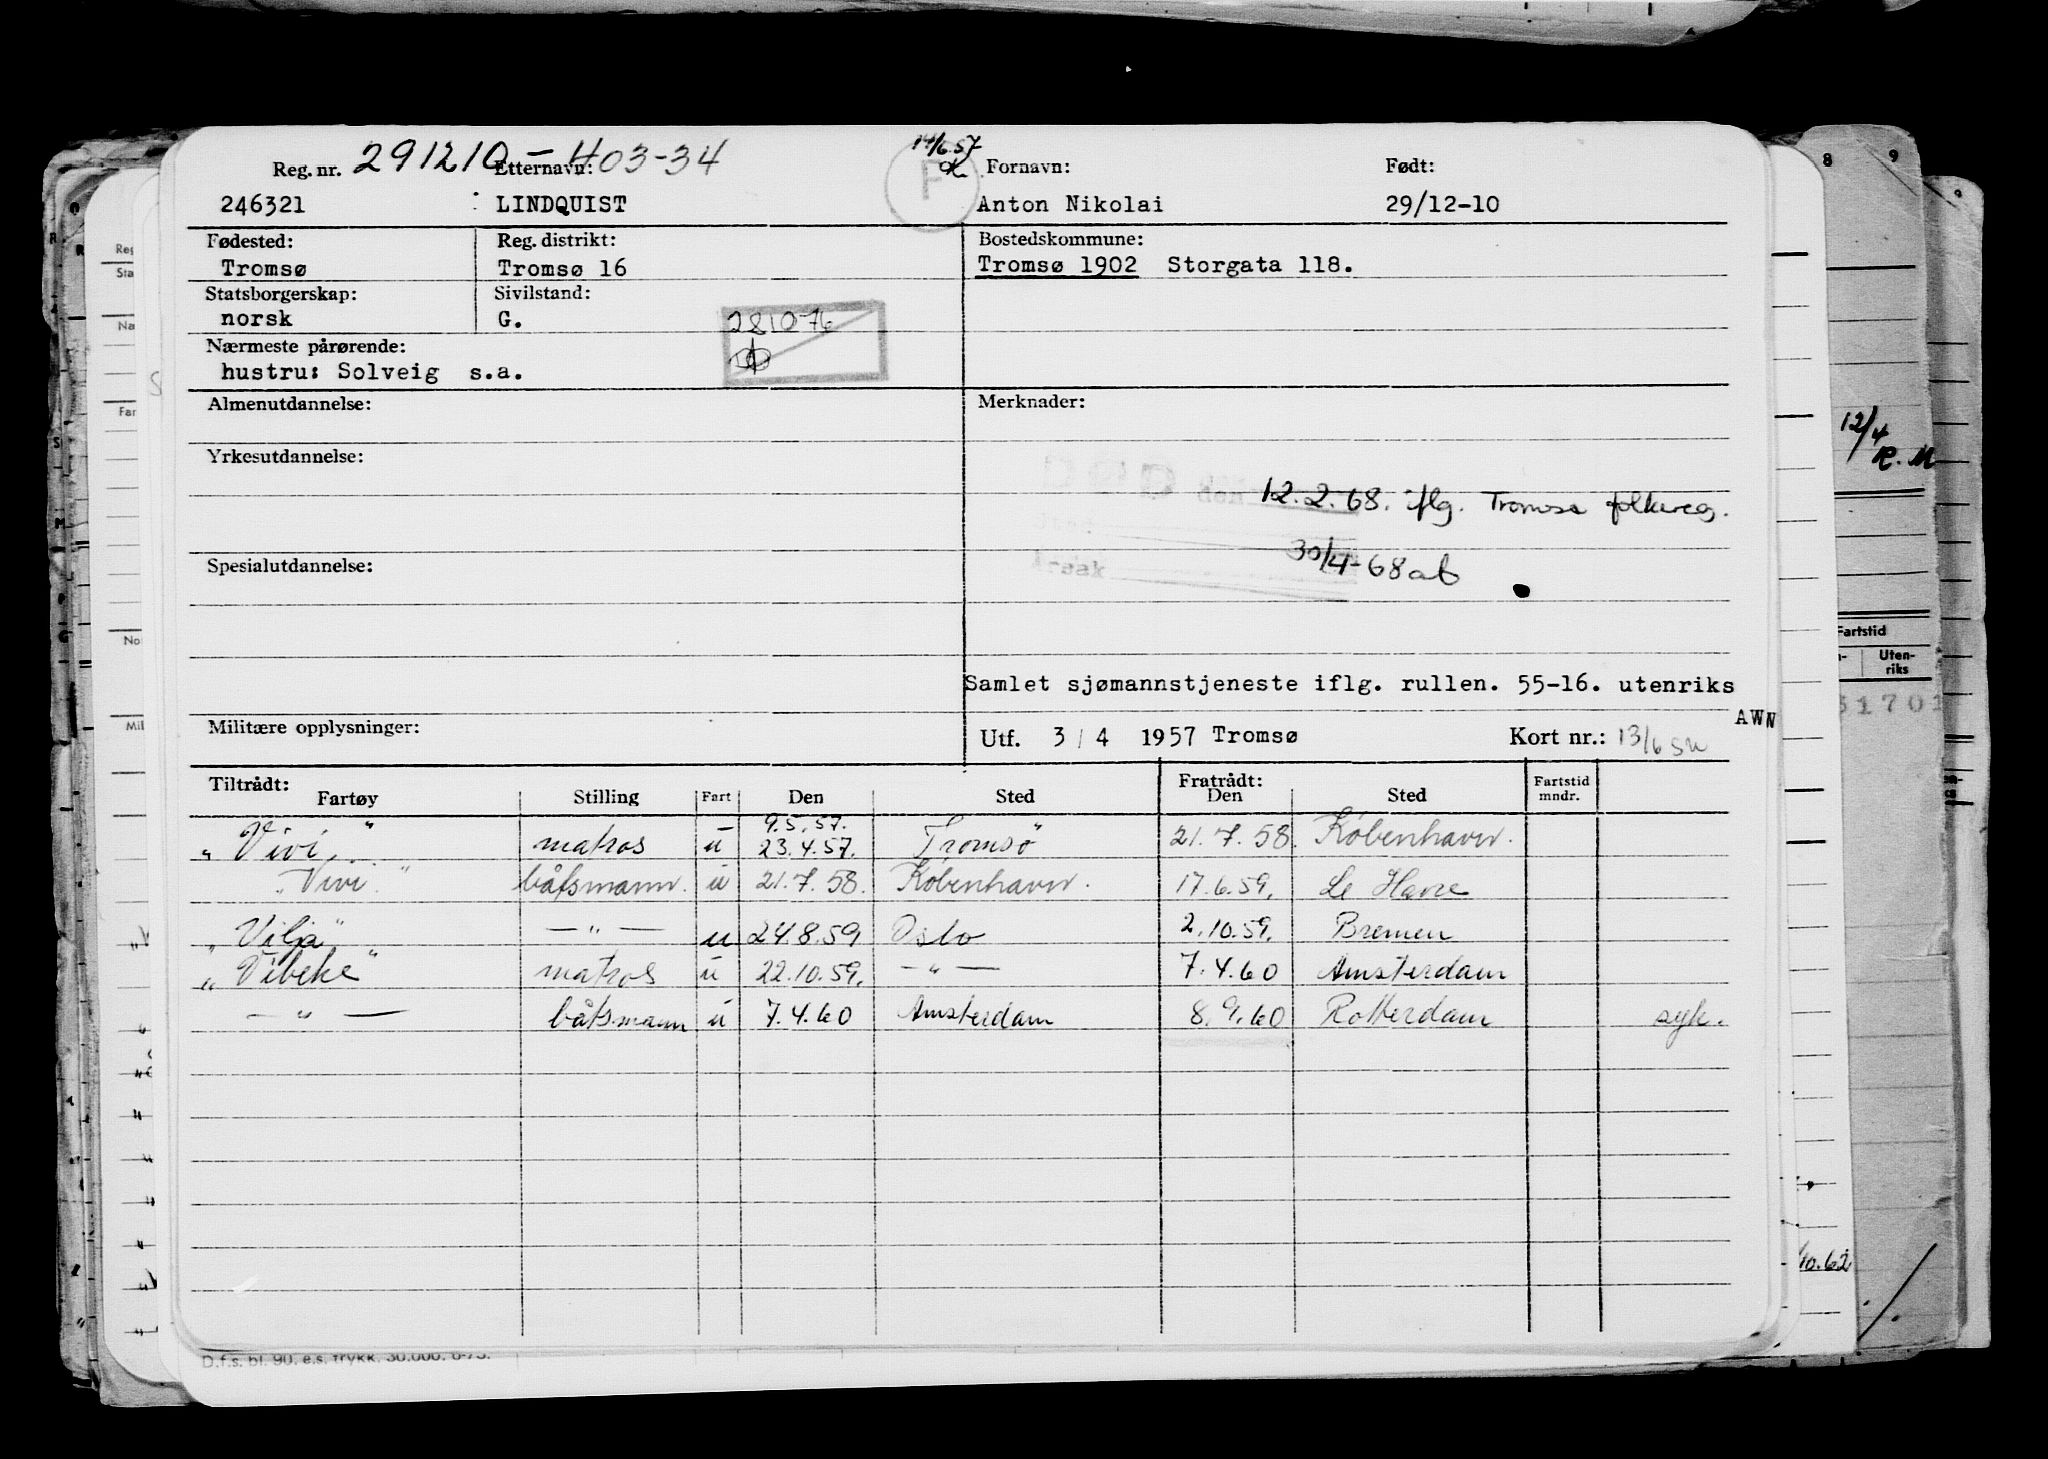 Reg. nr. 291210 - 403-34 Etternavn: 14/6.57 F Fornavn: Født:
246321 LINDQUIST Anton Nikolai 29/12-10
Fødested: Reg. distrikt: Bostedskommune:
Tromsø Tromsø 16 Tromsø 1902 Storgata 118.
Statsborgerskap: Sivilstand:
norsk G.
281076
Nærmeste pårørende:
hustru: Solveig s.a.
Almenutdannelse: Merknader:
Yrkesutdannelse:
den 12.2.68. iflg. Tromsø folkereg.
Årsak 30/4-68 ab
Spesialutdannelse:
Samlet sjømannstjeneste iflg. rullen. 55-16. utenriks
AWN
Militære opplysninger: Utf. 3/4 1957 Tromsø Kort nr.: 13/6 SN
Tiltrådt: Fratrådt: Fartstid
Fartøy Stilling Fart Den Sted Den Sted mndr.
9.5.57.
"Vivi" matros u 23.4.57. Tromsø 21.7.58. København.
"Vivi" båtsmann. u 21.7.58. København. 17.6.59. Le Havre
"Vilja" — " — u 24.8.59 Oslo 2.10.59. Bremen
"Vibeke" matros u 22.10.59. — " — 7.4.60 Amsterdam
— " — båtsmann u 7.4.60 Amsterdam 8.9.60 Rotterdam syk.
D.f.s. bl. 90. e.s. trykk. 30.000. 6-75.
8 9
12/4
R. M
Fartstid
Uten-
riks
51701
10.62